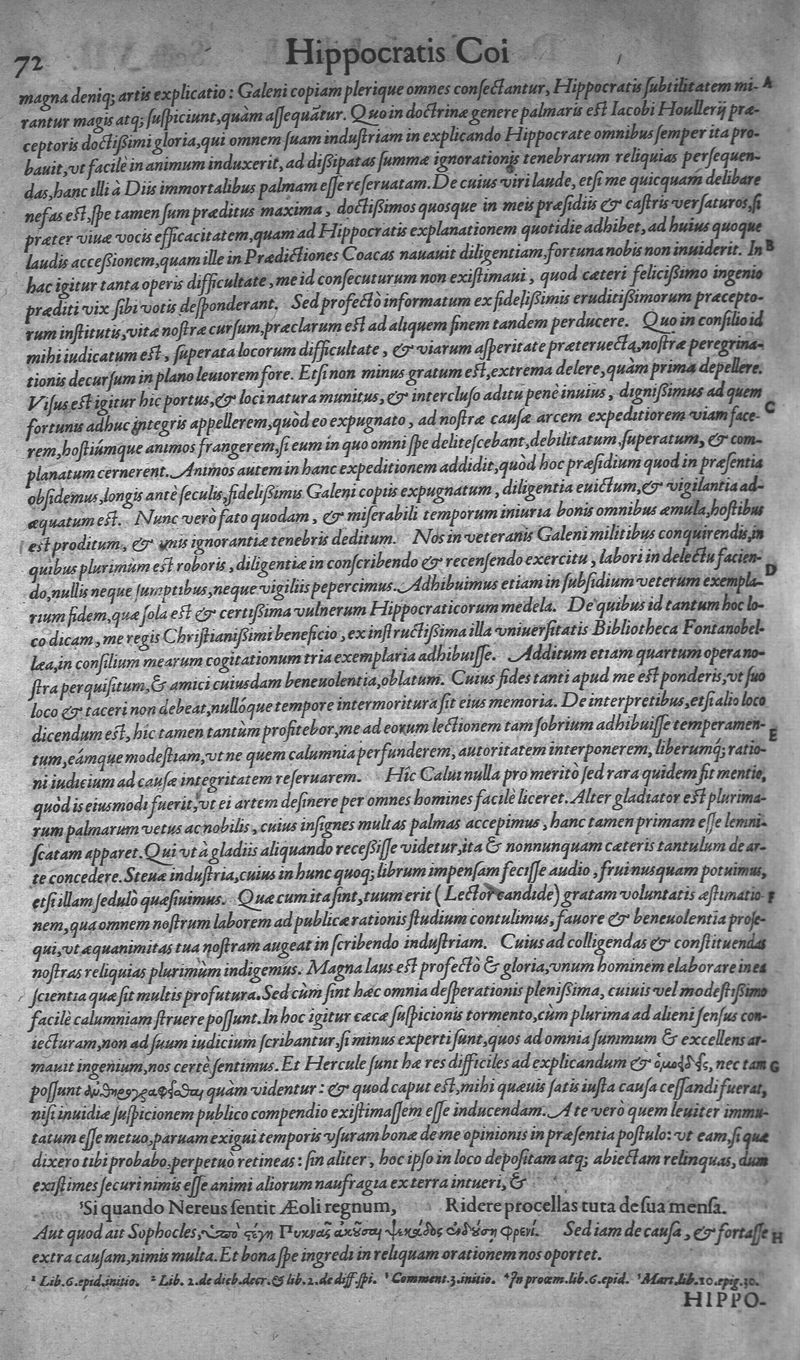 72
Hippocratis Coi
magna deniq; artis explicatio : Galeni copiam plerique omnes consectantur, Hippocratis subtilitatem mi- A
rantur magis atq; suspiciunt, quàm assequãtur. Quo in doctrinæ genere palmaris est Iacobi Houllerij præ-
ceptoris doctißimi gloria, qui omnem suam industriam in explicando Hippocrate omnibus semper ita pro-
bauit, vt facilè in animum induxerit, ad dißipatas summæ ignorationis tenebrarum reliquias persequen-
das, hanc illi à Diis immortalibus palmam esse reseruatam. De cuius viri laude, etsi me quicquam delibare
nefas est, spe tamen sum præditus maxima, doctißimos quosque in meis præsidiis & castris versaturos, si
præter viuæ vocis efficacitatem, quam ad Hippocratis explanationem quotidie adhibet, ad huius quoque
laudis acceßionem, quam ille in Prædictiones Coacas nauauit diligentiam, fortuna nobis non inuiderit. In B
hac igitur tanta operis difficultate, me id consecuturum non existimaui, quod cæteri felicißimo ingenio
præditi vix sibi votis desponderant. Sed profectò informatum ex fidelißimis eruditißimorum præcepto-
rum institutis, vitæ nostræ cursum, præclarum est ad aliquem finem tandem perducere. Quo in consilio id
mihi iudicatum est, superata locorum difficultate, & viarum asperitate præteruecta, nostræ peregrina-
tionis decursum in plano leuiorem fore. Etsi non minus gratum est, extrema delere, quàm prima depellere.
Visus est igitur hic portus, & loci natura munitus, & intercluso aditu penè inuius, dignißimus ad quem
fortunis adhuc integris appellerem, quòd eo expugnato, ad nostræ causæ arcem expeditiorem viam face- C
rem, hostiúmque animos frangerem, si eum in quo omni spe delitescebant, debilitatum, superatum, & com-
planatum cernerent. Animos autem in hanc expeditionem addidit, quòd hoc præsidium quod in præsentia
obsidemus, longis antè seculis, fidelißimis Galeni copiis expugnatum, diligentia euictum, & vigilantia ad-
æquatum est. Nunc verò fato quodam, & miserabili temporum iniuria bonis omnibus æmula, hostibus
est proditum, & imis ignorantiæ tenebris deditum. Nos in veteranis Galeni militibus conquirendis, in
quibus plurimum est roboris, diligentiæ in conscribendo & recensendo exercitu, labori in delectu facien- D
do, nullis neque sumptibus, neque vigiliis pepercimus. Adhibuimus etiam in subsidium veterum exempla-
rium fidem, quæ sola est & certißima vulnerum Hippocraticorum medela. De quibus id tantum hoc lo-
co dicam, me regis Christianißimi beneficio, ex instructißima illa vniuersitatis Bibliotheca Fontanobel-
læa, in consilium mearum cogitationum tria exemplaria adhibuisse. Additum etiam quartum opera no-
stra perquisitum, & amici cuiusdam beneuolentia, oblatum. Cuius fides tanti apud me est ponderis, vt suo
loco & taceri non debeat, nullóque tempore intermoritura sit eius memoria. De interpretibus, etsi alio loco
dicendum est, hîc tamen tantùm profitebor, me ad eorum lectionem tam sobrium adhibuisse temperamen- E
tum, eámque modestiam, vt ne quem calumnia perfunderem, autoritatem interponerem, liberumq́; ratio-
ni iudicium ad causæ integritatem reseruarem. Hîc Calui nulla pro merito sed rara quidem fit mentio,
quòd is eiusmodi fuerit, vt ei artem desinere per omnes homines facilè liceret. Alter gladiator est plurima-
rum palmarum vetus ac nobilis, cuius insignes multas palmas accepimus, hanc tamen primam esse lemni-
scatam apparet. Qui vt à gladiis aliquando recessisse videtur, ita & nonnunquam cæteris tantulum de ar-
te concedere. Steuæ industria, cuius in hunc quoq; librum impensam fecisse audio, frui nusquam potuimus,
etsi illam sedulò quæsiuimus. Quæ cum ita sint, tuum erit (Lector candide) gratam voluntatis æstimatio- F
nem, qua omnem nostrum laborem ad publicæ rationis studium contulimus, fauore & beneuolentia prose-
qui, vt æquanimitas tua nostram augeat in scribendo industriam. Cuius ad colligendas & constituendas
nostras reliquias plurimùm indigemus. Magna laus est profectò & gloria, vnum hominem elaborare in ea
scientia quæ sit multis profutura. Sed cùm sint hæc omnia desperationis plenißima, cuiuis vel modestißimo
facilè calumniam struere possunt. In hoc igitur cæcæ suspicionis tormento, cùm plurima ad alieni sensus con-
iecturam, non ad suum iudicium scribantur, si minus experti sunt, quos ad omnia summum & excellens ar-
mauit ingenium, nos certè sentimus. Et Hercule sunt hæ res difficiles ad explicandum & nec tam G
possunt quàm videntur : & quod caput est, mihi quæuis satis iusta causa cessandi fuerat,
nisi inuidiæ suspicionem publico compendio existimassem esse inducendam. A te verò quem leuiter immu-
tatum esse metuo, paruam exigui temporis vsuram bonæ de me opinionis in præsentia postulo: vt eam, si quæ
dixero tibi probabo, perpetuò retineas: sin aliter, hoc ipso in loco depositam atq; abiectam relinquas, dum
existimes securi nimis esse animi aliorum naufragia ex terra intueri, &
⁵Si quando Nereus sentit Æoli regnum, Ridere procellas tuta de sua mensa.
Aut quod ait Sophocles, Sed iam de causa, & fortasse H
extra causam, nimis multa. Et bona spe ingredi in reliquam orationem nos oportet.
¹ Lib. 6. epid. initio. ² Lib. 2. de dieb. decr. & lib. 2. de diff. spi. ³ Comment. 3. initio. ⁴ In proœm. lib. 6. epid. ⁵ Mart. lib. 10. epig. 30.
HIPPO-